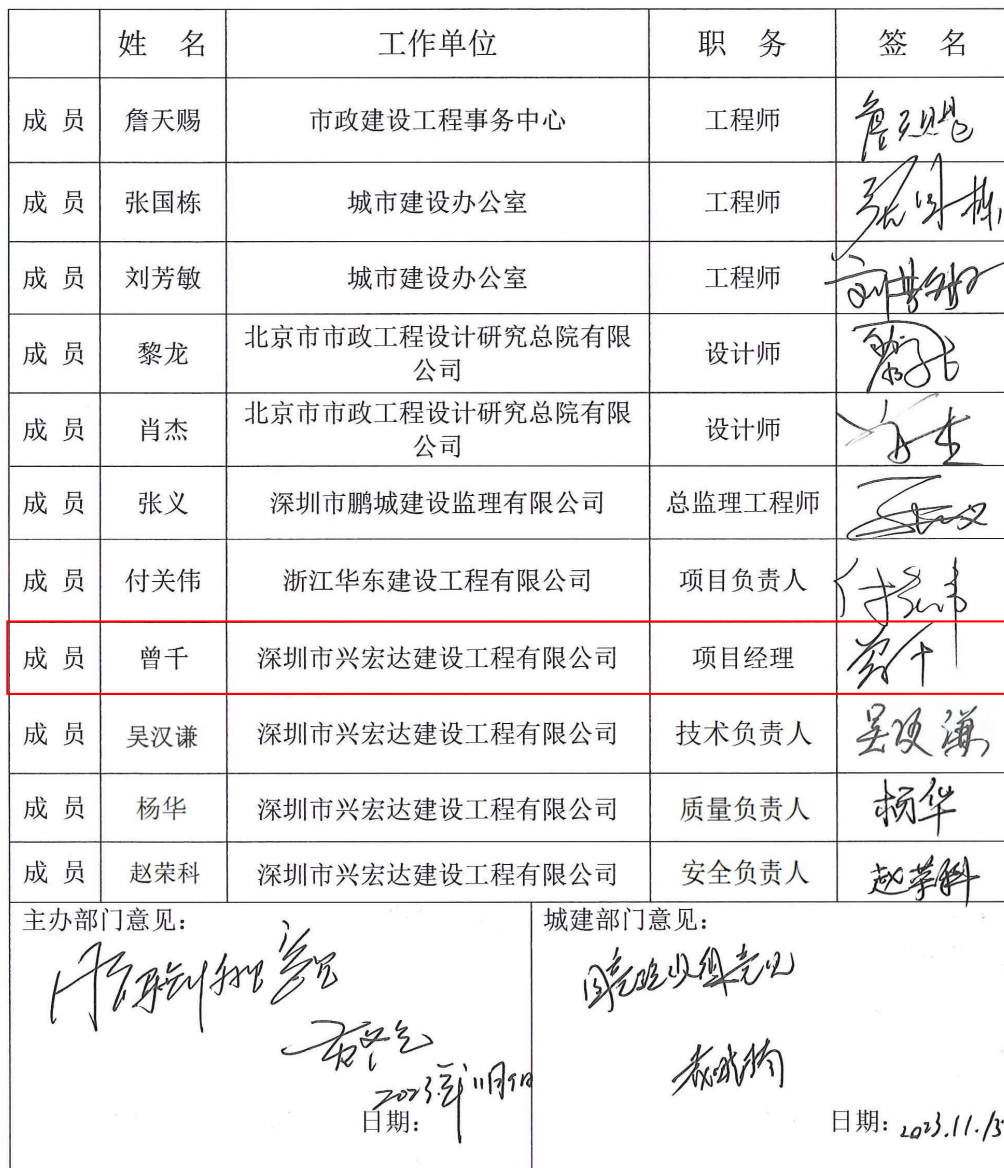 姓 名 工作单位 职 务 签 名
成 员 詹天赐 市政建设工程事务中心 工程师 詹天赐
成 员 张国栋 城市建设办公室 工程师 张国栋
成 员 刘芳敏 城市建设办公室 工程师 刘芳敏
成 员 黎龙 北京市市政工程设计研究总院有限 设计师 黎龙
公司
成 员 肖杰 北京市市政工程设计研究总院有限 设计师 肖杰
公司
成 员 张义 深圳市鹏城建设监理有限公司 总监理工程师 张义
成 员 付关伟 浙江华东建设工程有限公司 项目负责人 付关伟
成 员 曾千 深圳市兴宏达建设工程有限公司 项目经理 曾千
成 员 吴汉谦 深圳市兴宏达建设工程有限公司 技术负责人 吴汉谦
成 员 杨华 深圳市兴宏达建设工程有限公司 质量负责人 杨华
成 员 赵荣科 深圳市兴宏达建设工程有限公司 安全负责人 赵荣科
主办部门意见:
2023年11月9日
日期:
城建部门意见:
同意验收组意见
日期: 2023.11.15